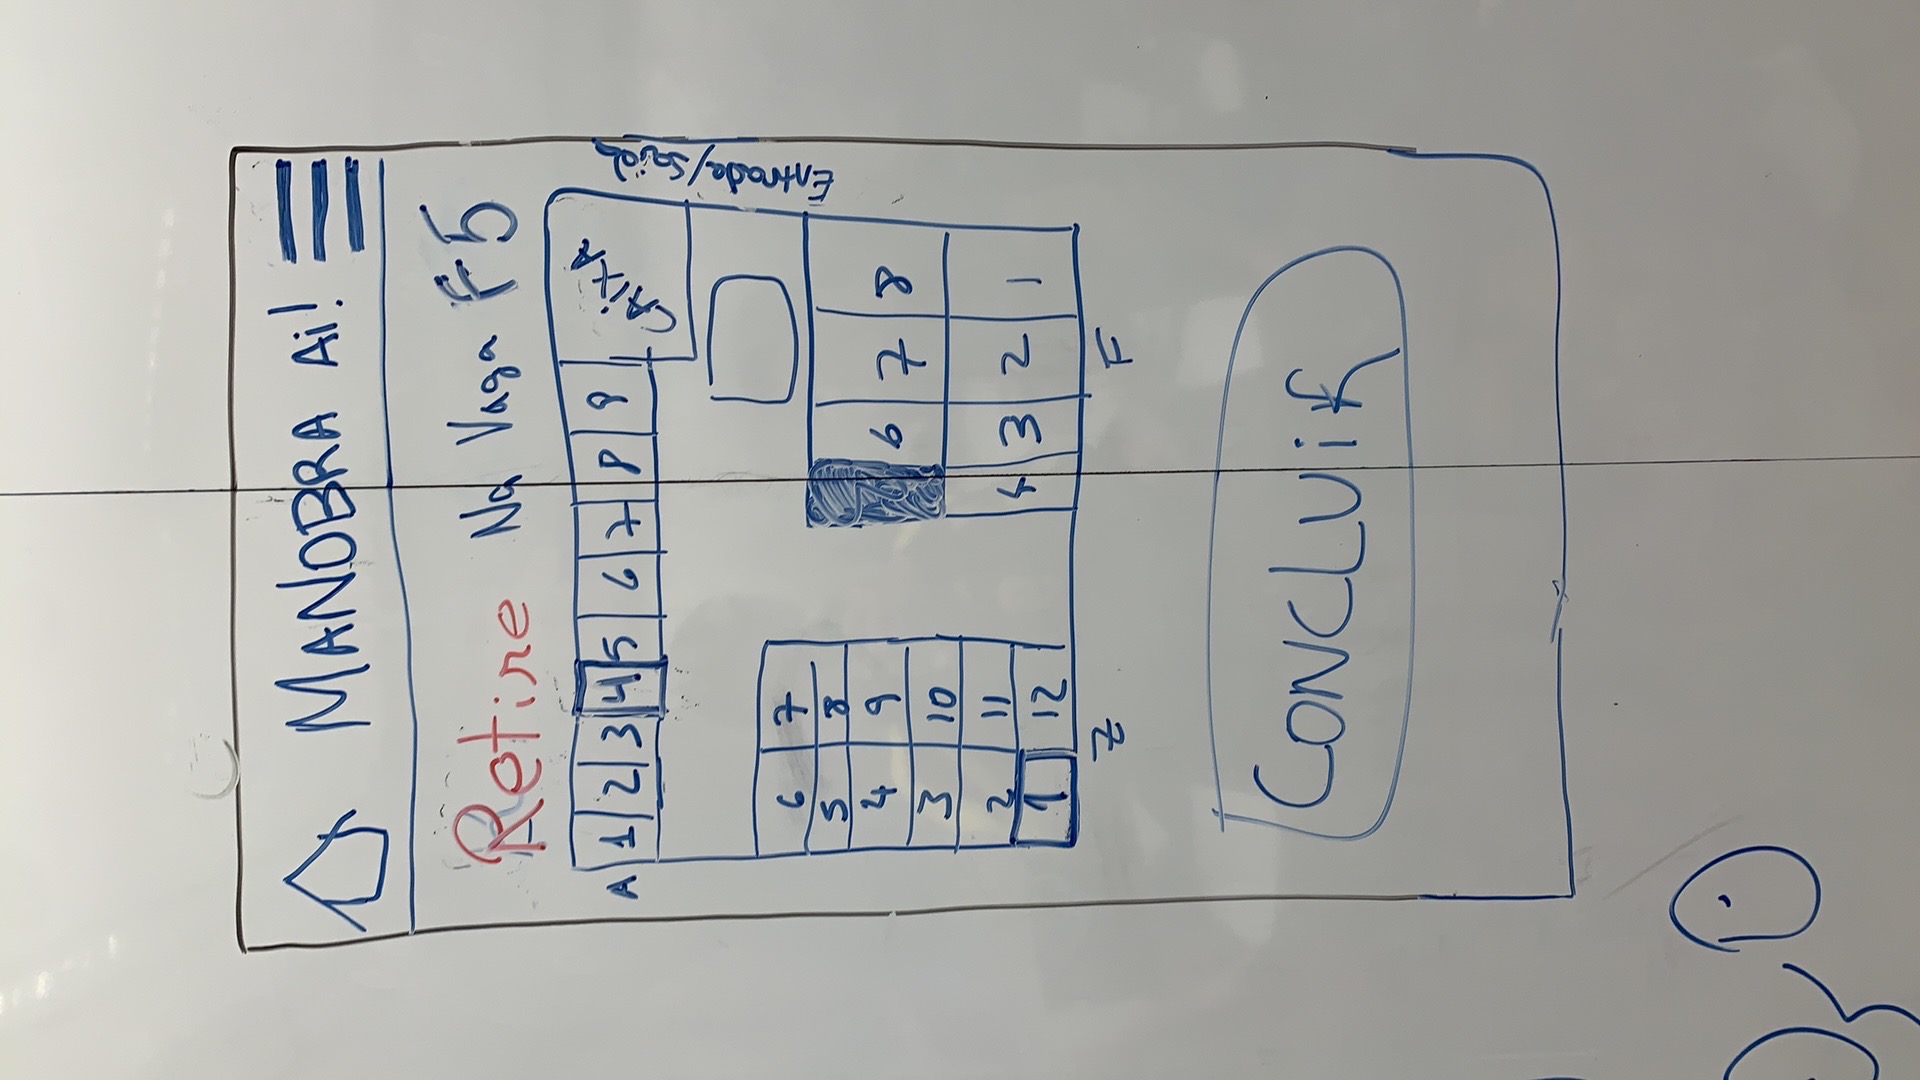 MANOBRA Ai!
Retire Na Vaga F5
A 1 2 3 4 5 6 7 8 9 CAIXA
Entrada/Saída
6 7
5 8
4 9
3 10
2 11
1 12
Z
6 7 8
4 3 2 1
F
CONCLUiR